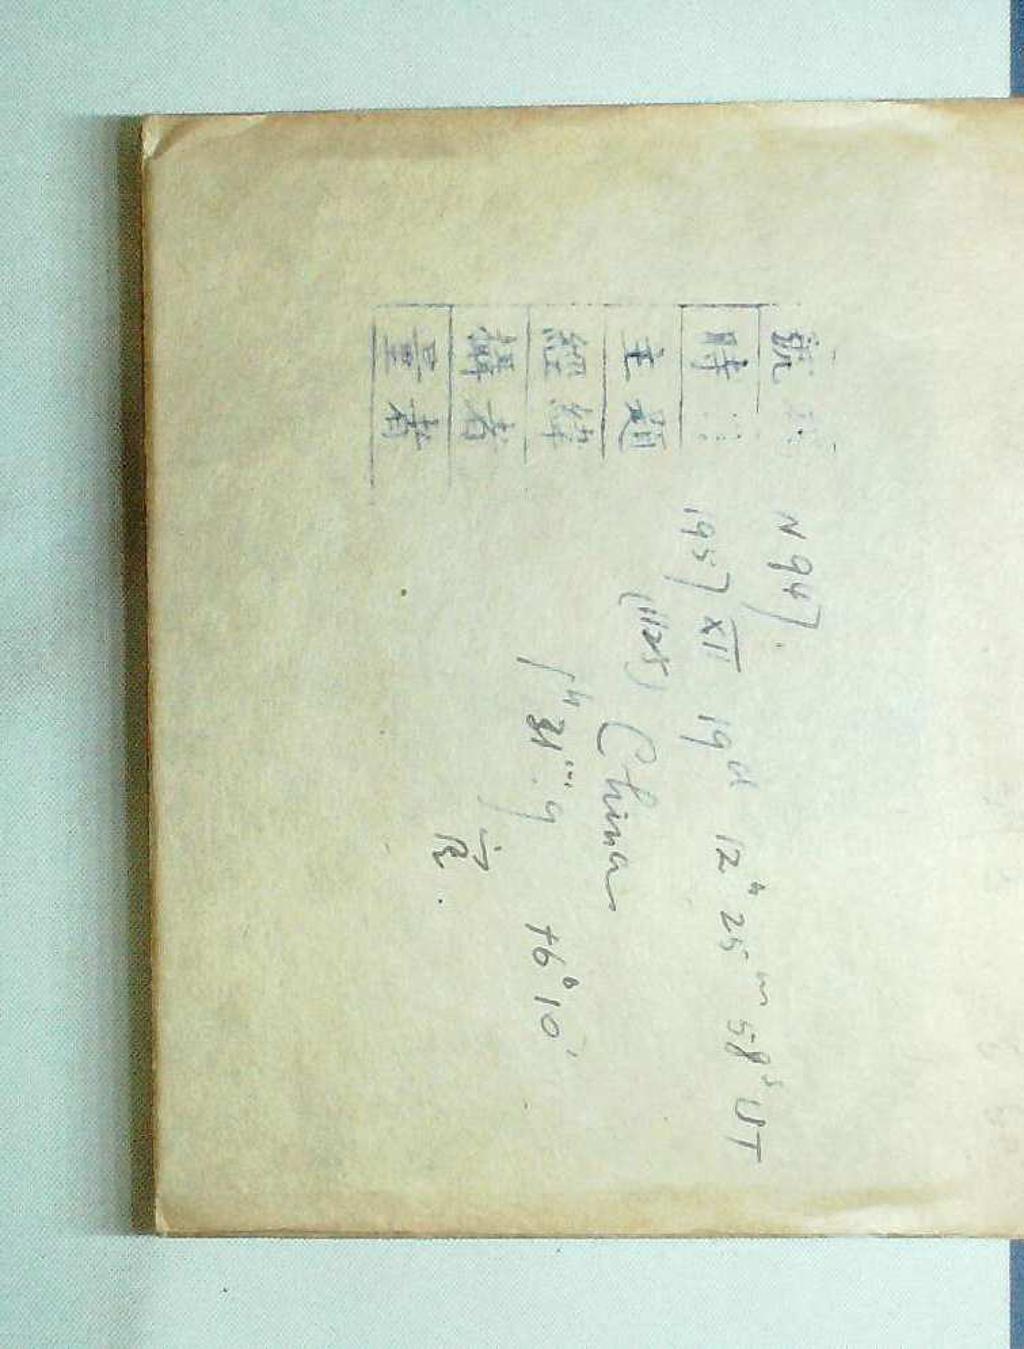 號
N 947.
時
1957 XII 19d 12h 25m 58s UT
主題
(1125) China
經緯
1h 31m.9 +6° 10′
攝者
量者